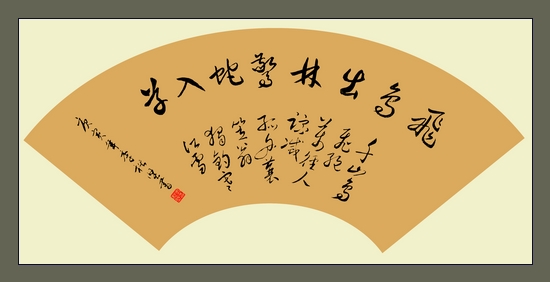 飛鳥出林驚蛇入草
千山鳥
飛絕
萬徑人
蹤滅
孤舟蓑
笠翁
獨釣寒
江雪
庚寅年